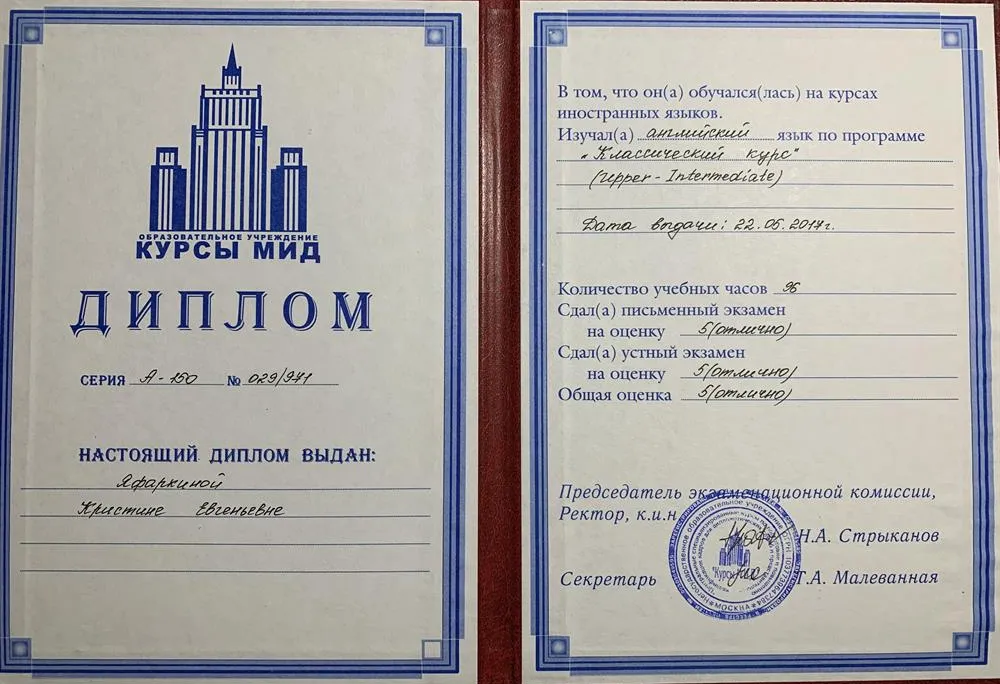 ОБРАЗОВАТЕЛЬНОЕ УЧРЕЖДЕНИЕ
КУРСЫ МИД
ДИПЛОМ
СЕРИЯ А-150 № 029/971
НАСТОЯЩИЙ ДИПЛОМ ВЫДАН:
Яфаркиной
Кристине Евгеньевне
В том, что он(а) обучался(лась) на курсах
иностранных языков.
Изучал(а) английский язык по программе
"Классический курс"
(Upper-Intermediate)
Дата выдачи: 22.05.2017г.
Количество учебных часов 96
Сдал(а) письменный экзамен
на оценку 5(отлично)
Сдал(а) устный экзамен
на оценку 5(отлично)
Общая оценка 5(отлично)
Председатель экзаменационной комиссии,
Ректор, к.и.н.
Н.А. Стрыканов
Секретарь Т.А. Малеванная
Негосударственное образовательное учреждение
ОГРН 1037739647384
"Курсы
МОСКВА